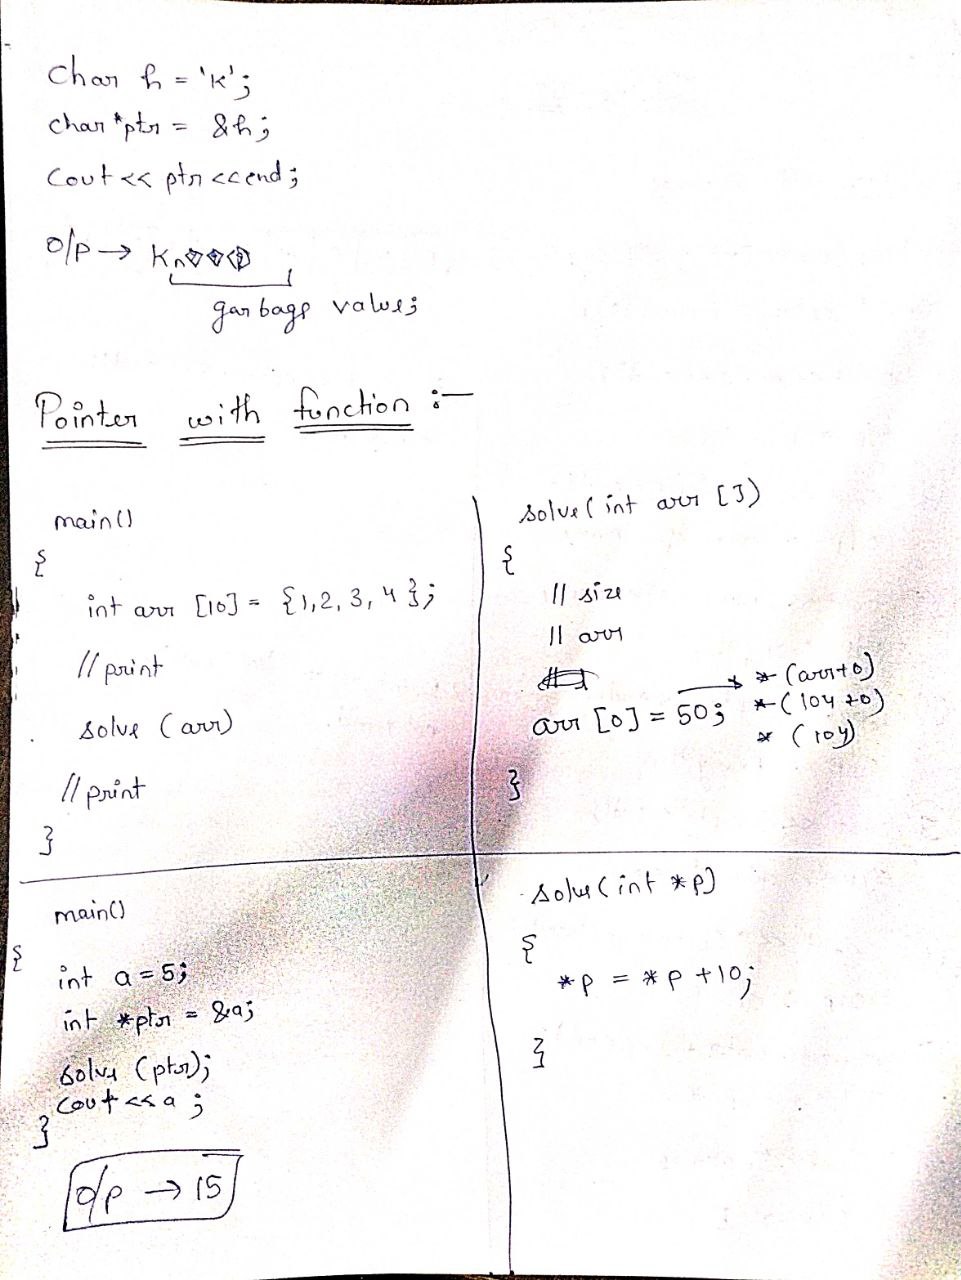 char h = 'k';
char *ptr = &h;
cout << ptr << end;
o/p → Kn
garbage value;
Pointer with function :-
main()
{
int arr [10] = {1,2,3,4};
// print
solve (arr)
// print
}
solve( int arr [])
{
// size
// arr
arr [0] = 50; → * (arr+0)
*(104+0)
* (104)
}
main()
{
int a=5;
int *ptr = &a;
solve (ptr);
cout << a ;
}
o/p → 15
solve(int *p)
{
*p = *p +10;
}